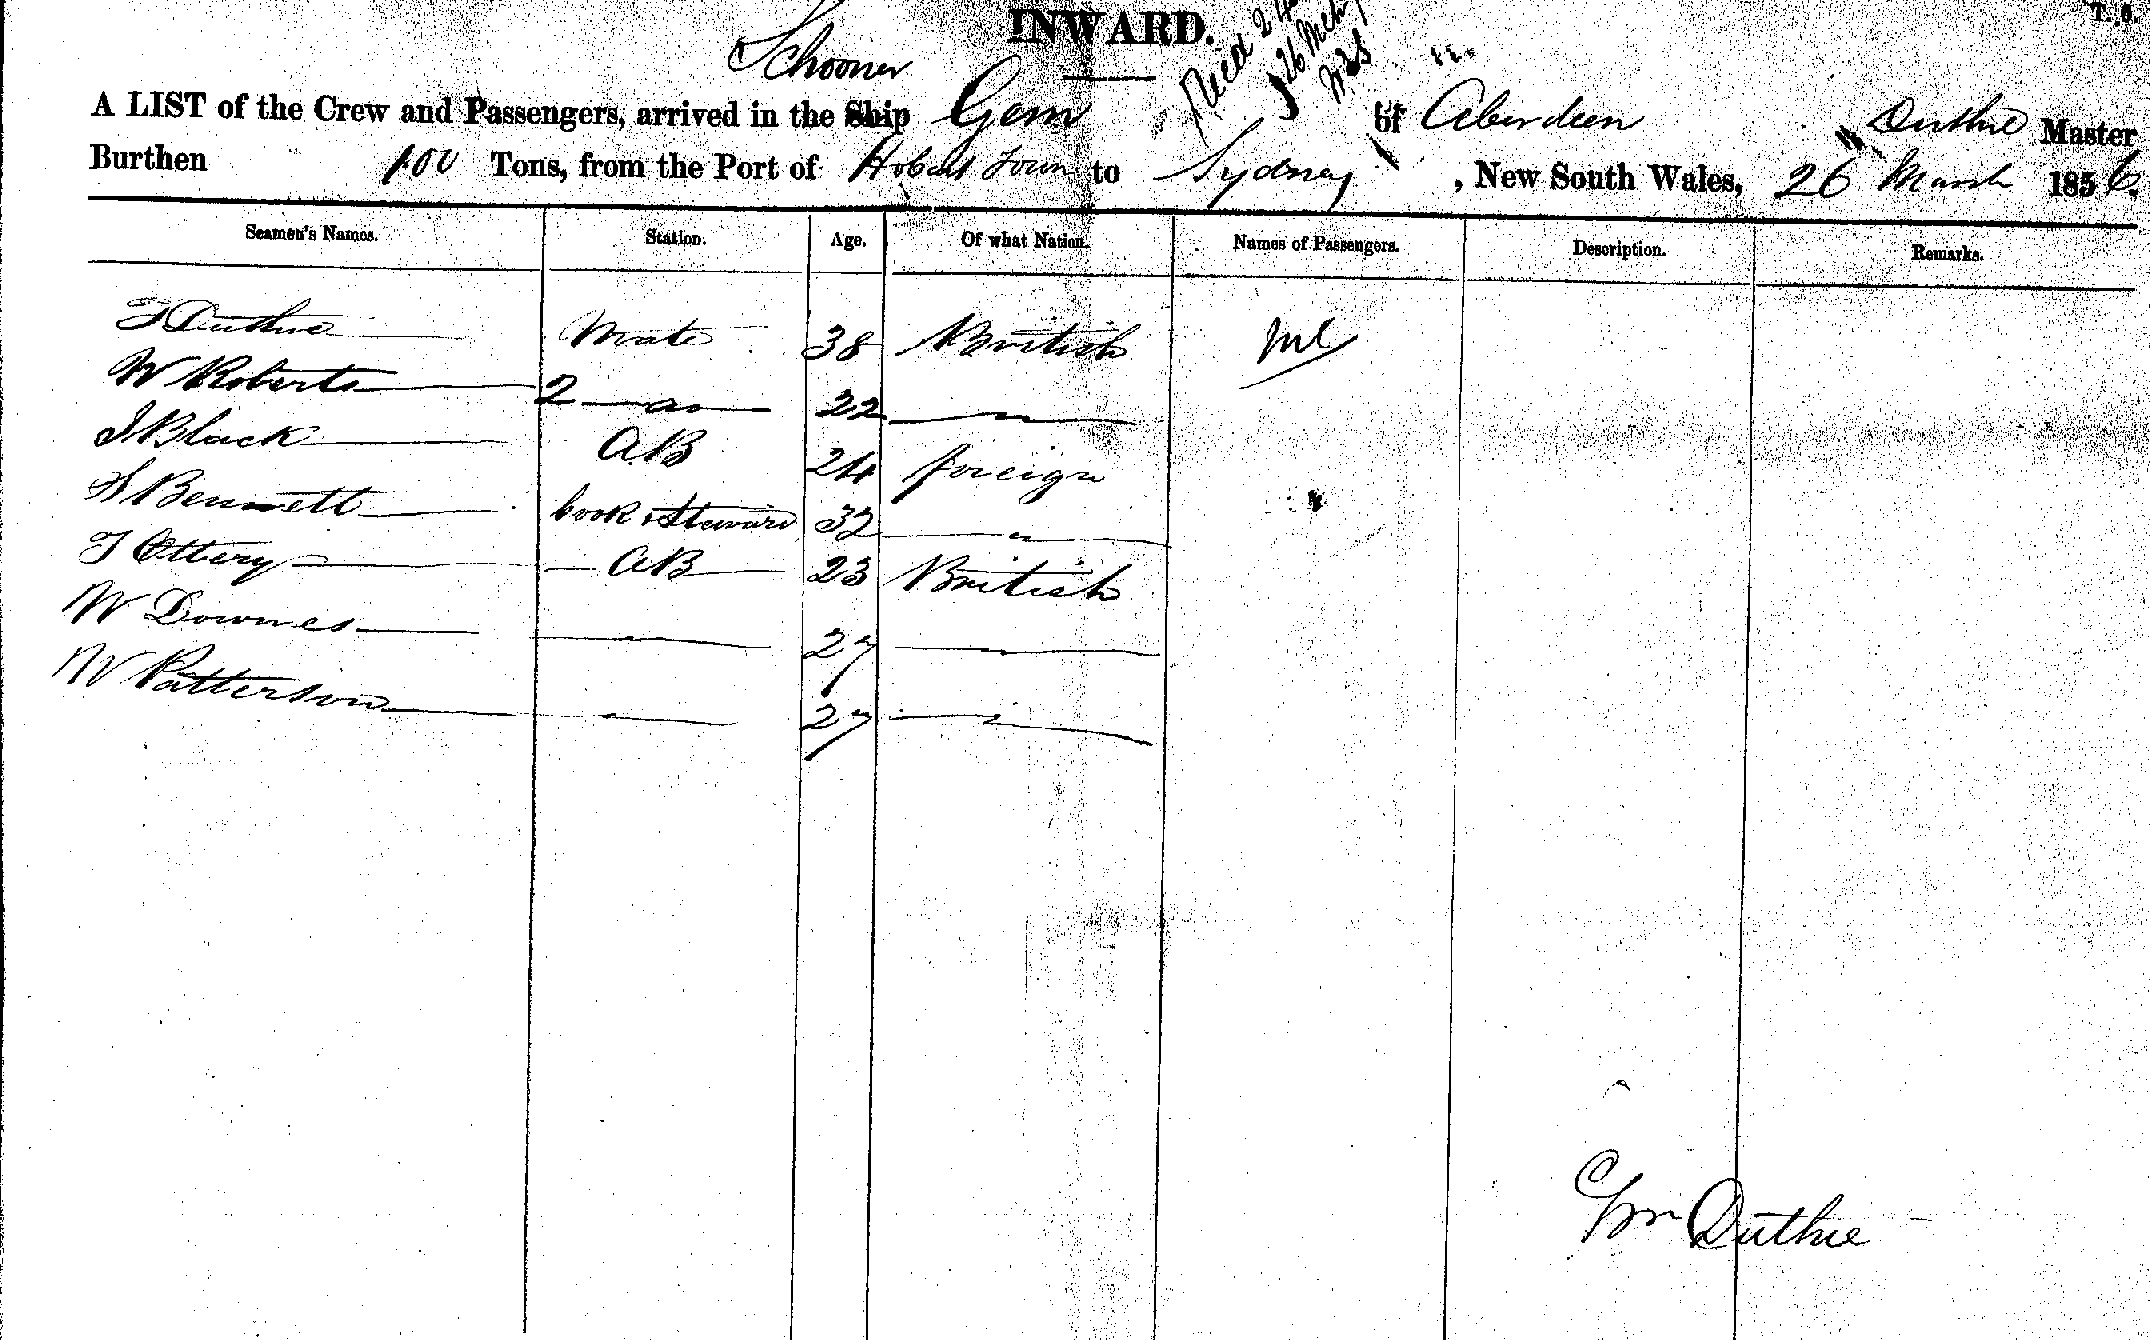 INWARD.
T. 6.
Schooner
A LIST of the Crew and Passengers, arrived in the Ship Gem of Aberdeen Duthie Master
Burthen 100 Tons, from the Port of Hobart Town to Sydney, New South Wales, 26 March 1856.
Seamen's Names. Station. Age. Of what Nation. Names of Passengers. Description. Remarks.
Duthie Mate 38 British Nil
W Roberts 2 — do — 22 — " —
J Black AB 24 foreign
S Bennett Cook & Steward 32 — " —
T Ottery AB 23 British
W Downes — 27 —
W Patterson — 27 — " —
Wm Duthie